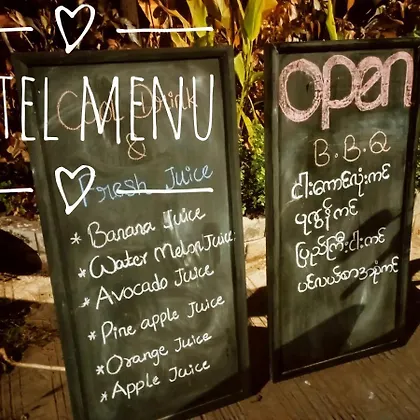 TEL MENU
Cool Drink
&
Fresh Juice
* Banana Juice
* Water Melon Juice
* Avocado Juice
* Pine apple Juice
* Orange Juice
* Apple Juice
Open
B.B.Q
ငါးကောင်လုံးကင်
ပုဇွန်ကင်
ပြည်ကြီးငါးကင်
ပင်လယ်စာအစုံကင်